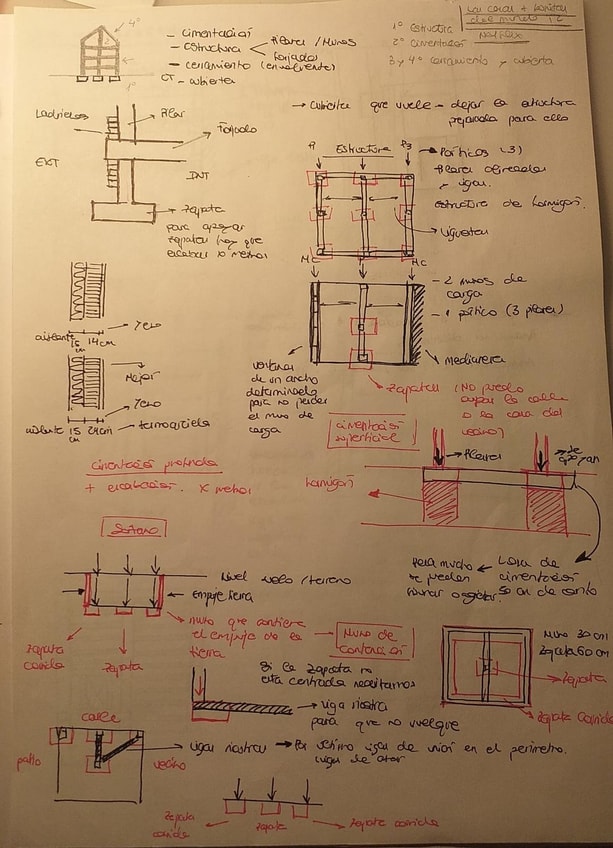 - cimentación
- estructura < Pilares / Muros
forjados
- cerramiento (envolvente)
- cubierta
CT
4º
1º
1º estructura
2º cimentación
3 y 4º cerramiento y cubierta
→ cubierta que vuele - dejar la estructura
preparada para ello
Ladrillos
Pilar
Forjado
EXT
INT
Zapata
para apoyar
zapatas hay que
excavar x metros
P Estructura P3
→ Pórticos (3)
Pilares alineados
+ vigas.
estructura de hormigón.
viguetas
MC P MC
- 2 muros de
carga
- 1 pórtico (3 pilares)
medianera
ventanas
de un ancho
determinado
para no perder
el muro de
carga
Zapatas (No puedo
ocupar la calle
o la casa del
vecino)
cimentación
superficial
aislante
14cm
→ Yeso
Mejor
→ Yeso
aislante 15 24cm
cm
- termoarcilla
cimentación profunda
+ excavación. x metros
Pilares
hormigón
Losa de
cimentación
50 cm de canto
Para mucho
se pueden
Sótano
Nivel suelo/terreno
Empuje tierra
muro que contiene
el empuje de la
tierra
Muro de
contención
zapata
corrida
zapata
Muro 30 cm
Zapata 60 cm
Zapata
Zapata corrida
Si la zapata no
está centrada necesitamos
viga riostra
para que no vuelque
calle
patio
vecino
vigas riostras → Por último vigas de unión en el perímetro.
vigas de atar
zapata
corrida
zapata
zapata corrida